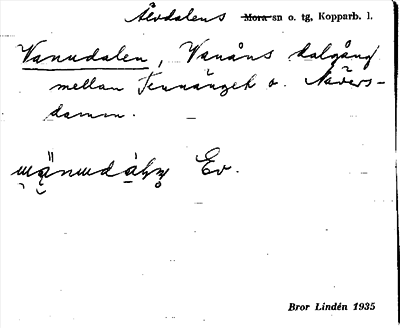 Älvdalens ~~Mora~~-sn o. tg, Kopparb. l.
Vanudalen, Vanåns dalgång
mellan Tennänget o. Navers-
damm.
Ev.
Bror Lindén 1935